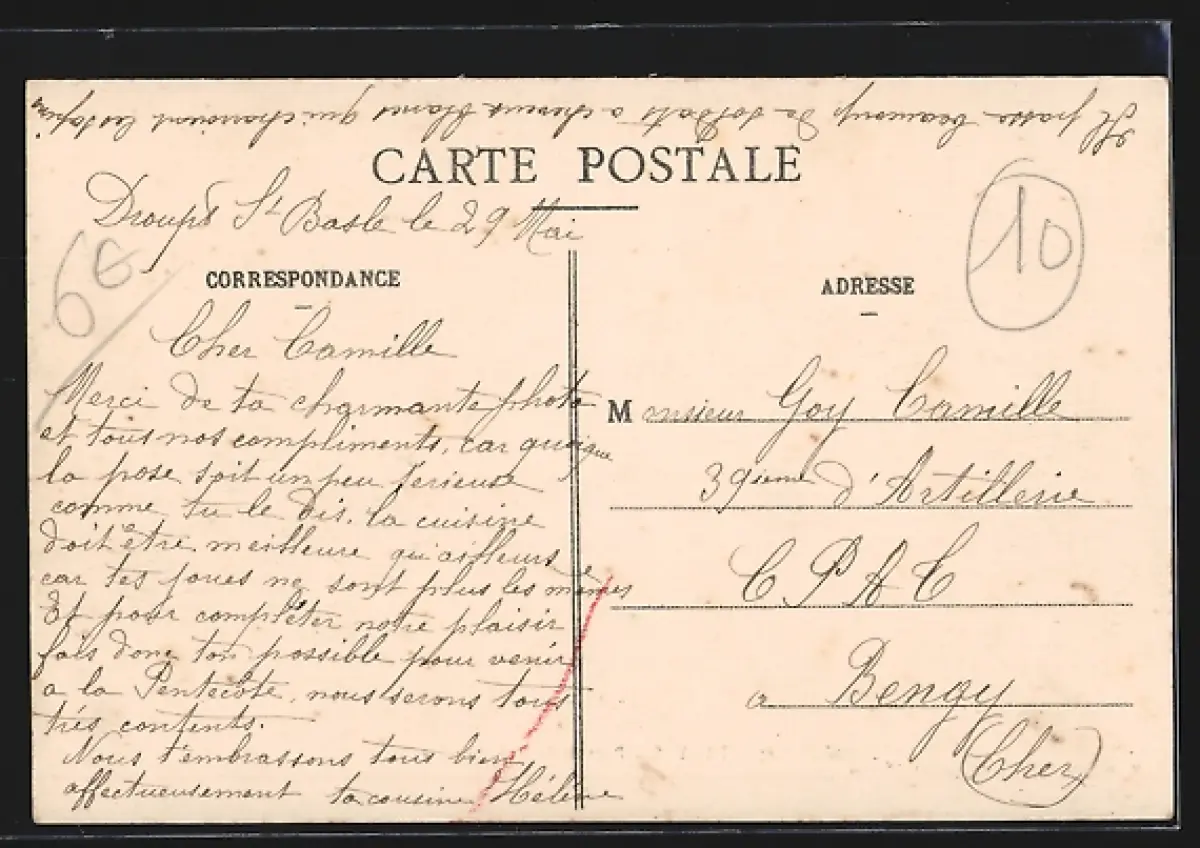 Il passe beaucoup de soldats a cheveux blancs qui chantaient
CARTE POSTALE
Droupt St Basle le 29 Mai
6€
10
CORRESPONDANCE
Cher Camille
Merci de ta charmante photo
et tous nos compliments, car quoique
la pose soit un peu serieuse
comme tu le dis, la cuisine
doit être meilleure qu'ailleurs
car tes joues ne sont plus les mêmes
Et pour complêter notre plaisir
fais donc ton possible pour venir
a la Pentecôte, nous serons tous
trés contents.
Nous t'embrassons tous bien
affectueusement ta cousine Hélène
ADRESSE
Monsieur Goy Camille
39ieme d'Artillerie
C P A C
a Bengy
(Cher)